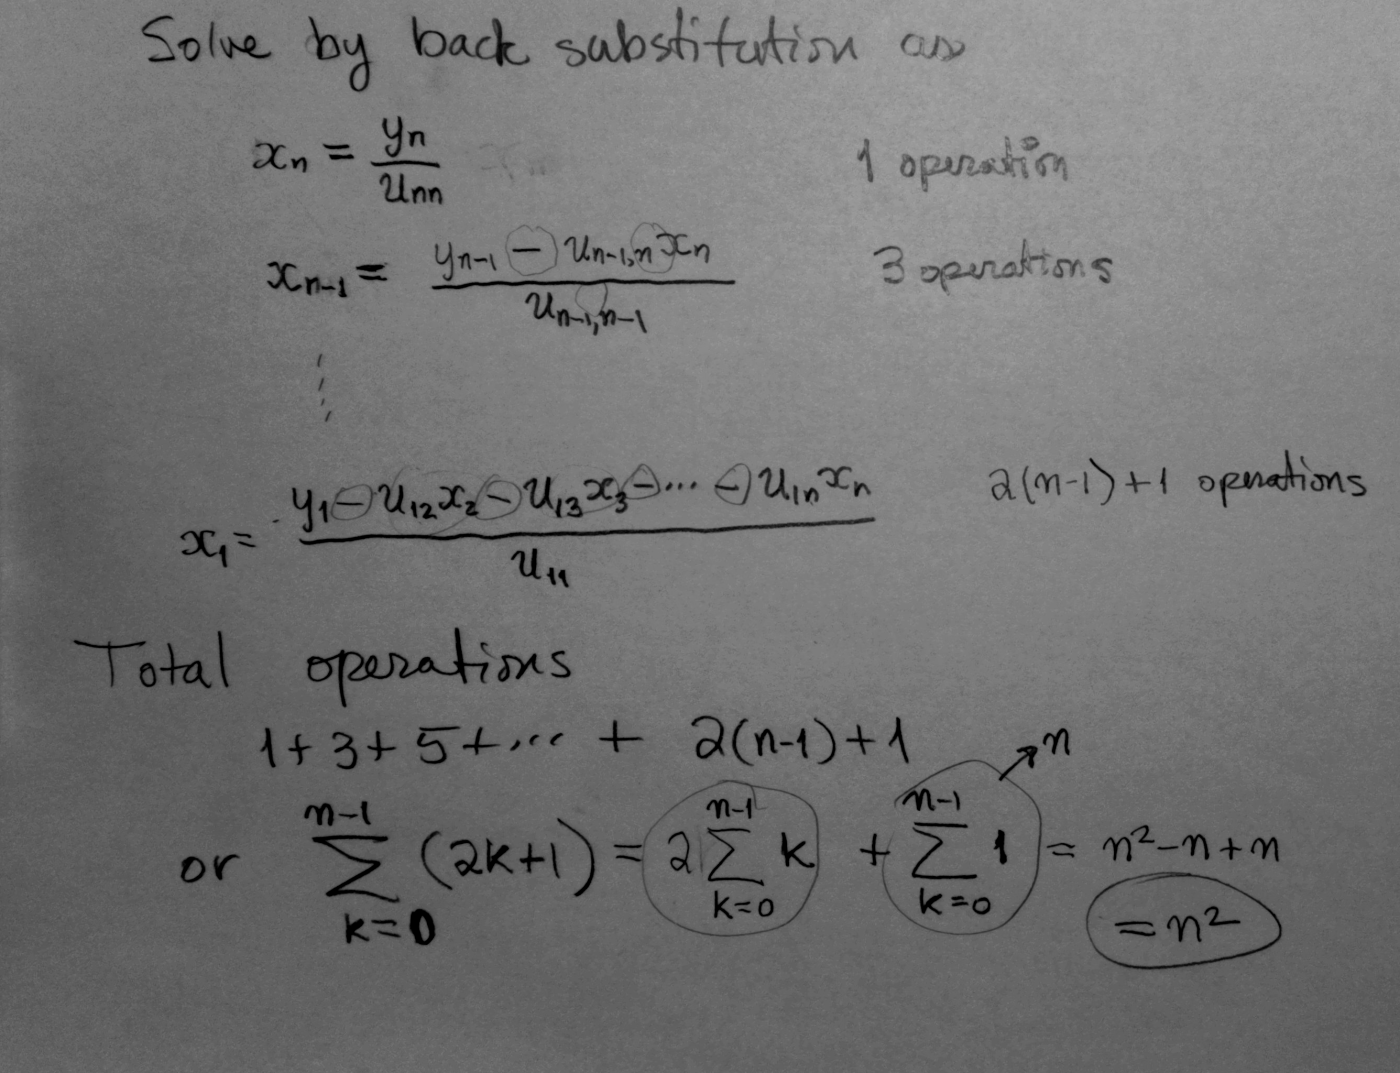 Solve by back substitution as
xₙ = yₙ / uₙₙ 1 operation
xₙ₋₁ = (yₙ₋₁ − uₙ₋₁,ₙ xₙ) / uₙ₋₁,ₙ₋₁ 3 operations
⋮
x₁ = (y₁ − u₁₂x₂ − u₁₃x₃ − ⋯ − u₁ₙxₙ) / u₁₁ 2(n-1)+1 operations
Total operations
1+3+5+⋯ + 2(n-1)+1
or ∑_{k=0}^{n-1} (2k+1) = 2 ∑_{k=0}^{n-1} k + ∑_{k=0}^{n-1} 1 ↗ n = n²-n+n
= n²